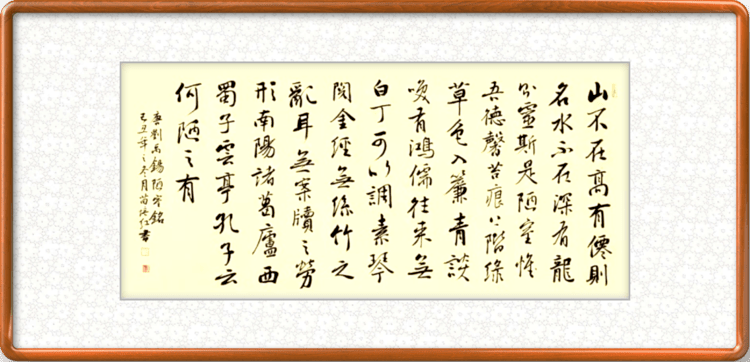 山不在高有僊則
名水不在深有龍
則靈斯是陋室惟
吾德馨苔痕上階綠
草色入簾青談
咲有鴻儒往来無
白丁可以調素琴
閱金經無絲竹之
亂耳無案牘之勞
形南陽諸葛廬西
蜀子雲亭孔子云
何陋之有
劉禹錫陋室銘
己丑年之冬月苗書